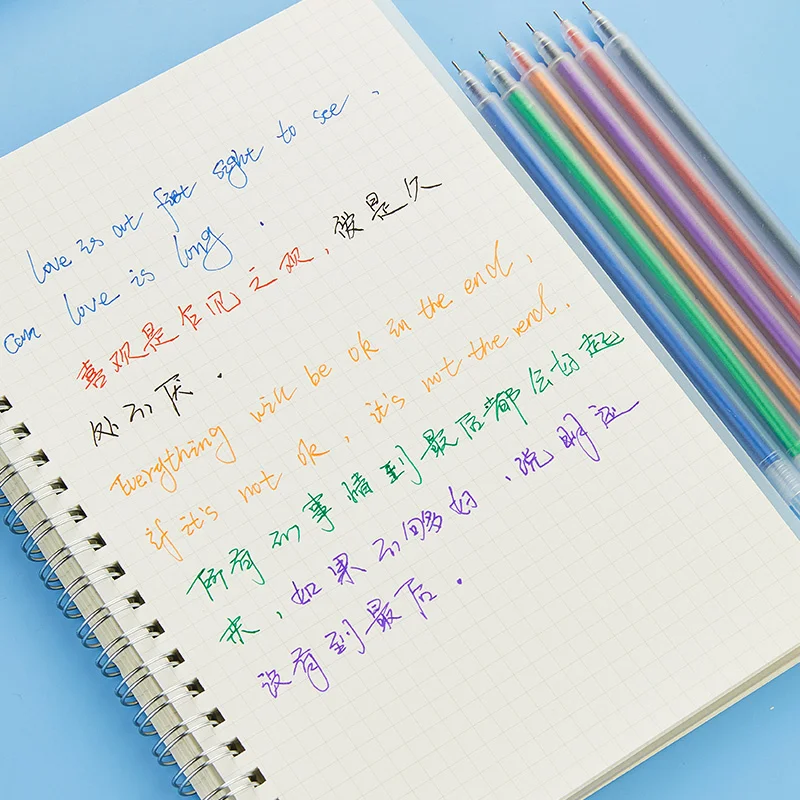 Love is at first sight to see,
can love is long.
喜欢是乍见之欢，彼是久
处不厌．
Everything will be ok in the end,
if it's not ok, it's not the end.
所有的事情到最后都会好起
来，如果不够好，说明还
没有到最后．